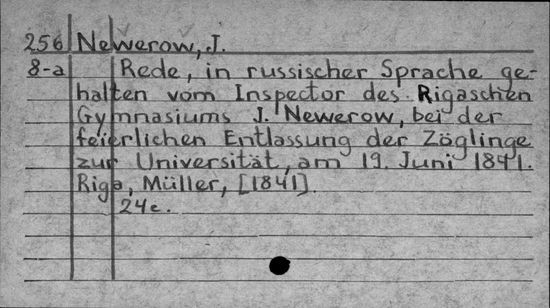 256 Newerow, J.
8-a Rede, in russischer Sprache ge-
halten vom Inspector des Rigaschen
Gymnasiums J. Newerow, bei der
feierlichen Entlassung der Zöglinge
zur Universität, am 19. Juni 1841.
Riga, Müller, [1841].
24c.